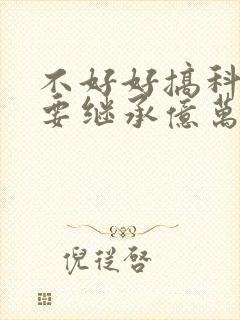 不好好搞科
要继承億萬
倪從啓